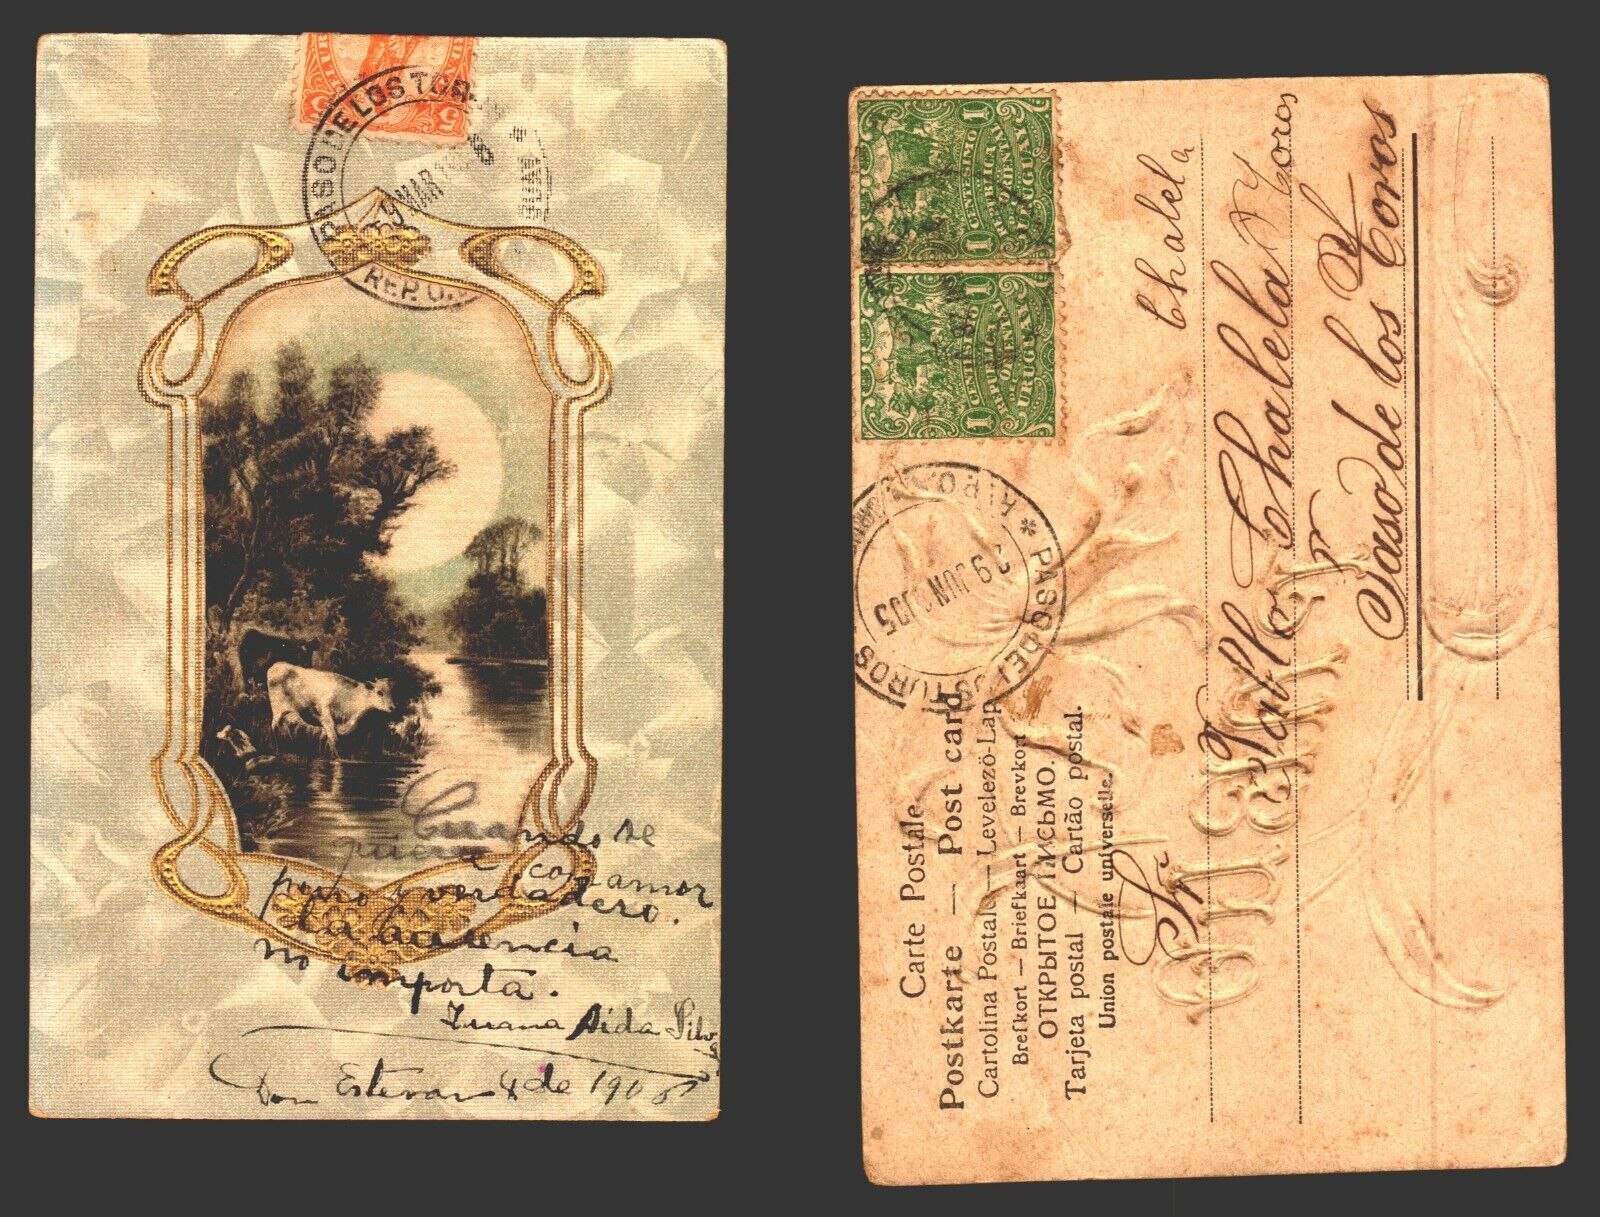 5
PASO DE LOS TOR
MAR
REP. O.
Cuando se
quiere con amor
puro y verdadero.
La ausencia
no importa.
Juana Aida Silva
Don Estevan 4 de 1905
1 CENTESIMO 1
REPUBLICA
O. DEL
URUGUAY
1 CENTESIMO 1
REPUBLICA
URUGUAY
* PASO DE LOS TOROS
29 JUN 1905
Carte Postale
Postkarte — Post card
Cartolina Postale — Levelező-Lap
Brefkort — Briefkaart — Brevkort
ОТКРЫТОЕ ПИСЬМО.
Tarjeta postal — Cartão postal.
Union postale universelle.
Chalela
Sr. Pablo Chalela
Paso de los Toros